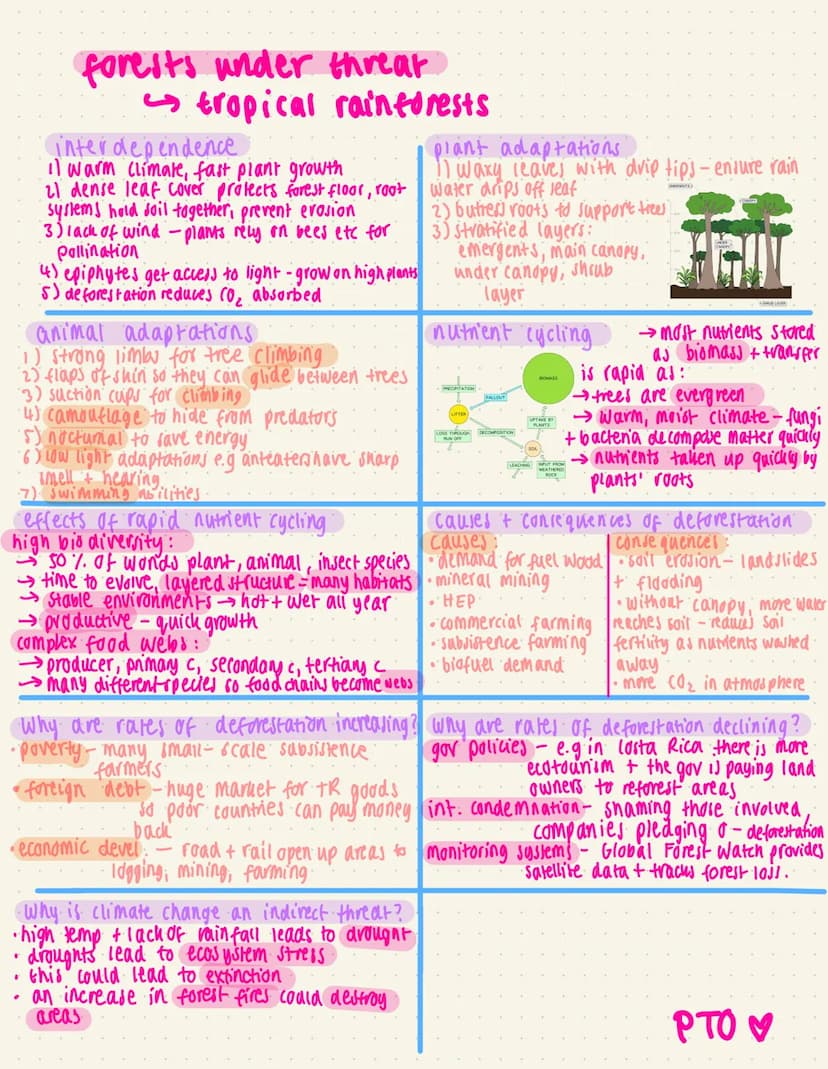 forests under threat
↳ tropical rainforests
interdependence
1) warm climate, fast plant growth
2) dense leaf cover protects forest floor, root
systems hold soil together, prevent erosion
3) lack of wind – plants rely on bees etc for
pollination
4) epiphytes get access to light - grow on high plants
5) deforestation reduces CO2 absorbed
plant adaptations
1) waxy leaves with drip tips – ensure rain
water drips off leaf
2) buttress roots to support trees
3) stratified layers:
emergents, main canopy,
under canopy, shrub
layer
EMERGENTS
CANOPY
UNDER
CANOPY
SHRUB LAYER
animal adaptations
1) strong limbs for tree climbing
2) flaps of skin so they can glide between trees
3) suction cups for climbing
4) camouflage to hide from predators
5) nocturnal to save energy
6) low light adaptations e.g anteaters have sharp
smell + hearing
7) swimming abilities
nutrient cycling
→ most nutrients stored
as biomass + transfer
is rapid as:
→ trees are evergreen
→ warm, moist climate – fungi
+ bacteria decompose matter quickly
→ nutrients taken up quickly by
plants' roots
BIOMASS
PRECIPITATION
FALLOUT
LITTER
UPTAKE BY
PLANTS
LOSS THROUGH
RUN OFF
DECOMPOSITION
SOIL
LEACHING
INPUT FROM
WEATHERED
ROCK
effects of rapid nutrient cycling
high biodiversity:
→ 50% of worlds plant, animal, insect species
→ time to evolve, layered structure = many habitats
→ stable environments → hot + wet all year
→ productive – quick growth
complex food webs:
→ producer, primary c, secondary c, tertiary c
→ many different species so food chains become webs
causes + consequences of deforestation
causes:
• demand for fuel wood
• mineral mining
• HEP
• commercial farming
• subsistence farming
• biofuel demand
consequences
• soil erosion – landslides
+ flooding
• without canopy, more water
reaches soil – reduces soil
fertility as nutrients washed
away
• more CO2 in atmosphere
Why are rates of deforestation increasing?
• poverty – many small-scale subsistence
farmers
• foreign debt – huge market for TR goods
so poor countries can pay money
back
• economic devel. – road + rail open up areas to
logging, mining, farming
Why are rates of deforestation declining?
gov policies – e.g in Costa Rica there is more
ecotourism + the gov is paying land
owners to reforest areas
int. condemnation – shaming those involved,
companies pledging 0 – deforestation
monitoring systems – Global Forest Watch provides
satellite data + tracks forest loss.
Why is climate change an indirect threat?
• high temp + lack of rainfall leads to drought
• droughts lead to ecosystem stress
• this could lead to extinction
• an increase in forest fires could destroy
areas
PTO ♡